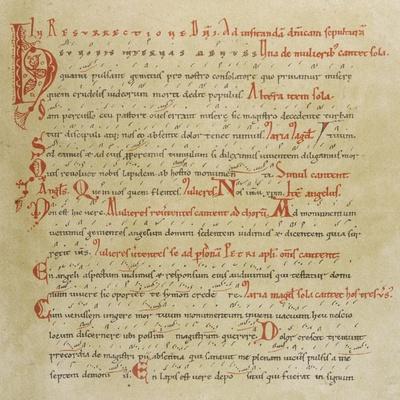 In Resurrectione Dnı. Ad uisitandā dnicam sepulturā
Heu nobis internas mentes Una de mulierib; cantet sola.
Quanti pulsant gemitus pro nostro consolatore quo priuamur misere
quem crudelis iudeorum morti dedit populus. Altera item sola.
Iam percusso ceu pastore oues errant misere sic magistro decedente turban
tur discipuli atq; nos eo absente dolor tenet nimius. Maria magd.
Sed eamus et ad eius properemus tumulum si dileximus uiuentem diligamus mor
Quis reuoluet nobis lapidem ab hostio monumen ta. Simul cantent
Angls. Quem uos quem flentes. Mulieres. Nos ihm xpm. Ite angelus.
Non est hic uere. Mulieres reuertentes cantent ad chorū. Ad monumentum
uenimus gementes angelum domini sedentem uidimus et dicentem quia sur
rexit ihs. Mulieres uertentes se ad psonā Petri apli oms cantent;
En angeli aspectum uidimus et responsum eius audiuimus qui testatur domi
num uiuere sic oportet te symon crede re. Maria magd sola cantet hos tres uṡ.
Cum uenissem ungere mortuum monumentum inueni uacuum heu nescio
locum discernere ubi possim magistrum querere. Dolor crescit tremunt
precordia de magistri pii absentia qui sanauit me plenam uiciis pulsis a me
septem demoniis. En lapis est uere depo situs qui fuerat in signum